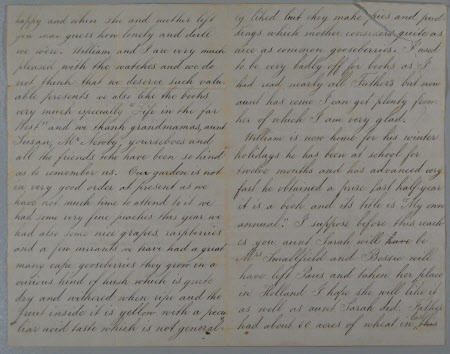 happy and when she and mother left
you may guess how lonely and dull
we were. William and I are very much
pleased with the watches and we do
not think that we deserve such valu-
able presents we also like the books
very much especially "Life in the far
West" and we thank grandmamas, aunt
Susan, Mr Newby, yourselves and
all the friends who have been so kind
as to remember us. Our garden is not
in very good order at present as we
have not much time to attend to it we
had some very fine peaches this year we
had also some nice grapes, raspberries
and a few currants we have had a great
many cape gooseberries they grow in a
curious kind of husk which is quite
dry and withered when ripe and the
fruit inside it is yellow with a pecu
liar acid taste which is not general-
ly liked but they make pies and pud
dings which mother considers quite as
nice as common gooseberries. I used
to be very badly off for books as I
had read nearly all Father's but now
aunt has come I can get plenty from
her of which I am very glad.
William is now home for his winter
holidays he has been at school for
twelve months and has advanced very
fast he obtained a prise last half year
it is a book and its title is "My own
annual". I suppose before this reach-
es you aunt Sarah will have be
Mrs and Bessie will
have left Paris and taken her place
in Holland I hope she will like it
as well as aunt Sarah did. Father
had about 60 acres of wheat in this